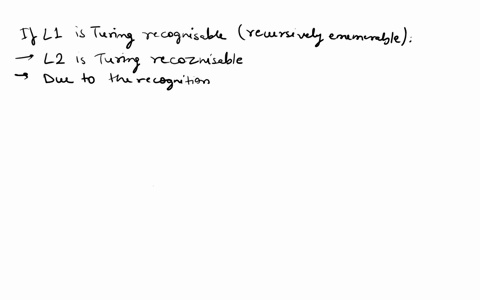 If L1 is Turing recognisable (recursively enumerable).
→ L2 is Turing recoznisable
→ Due to the recognition